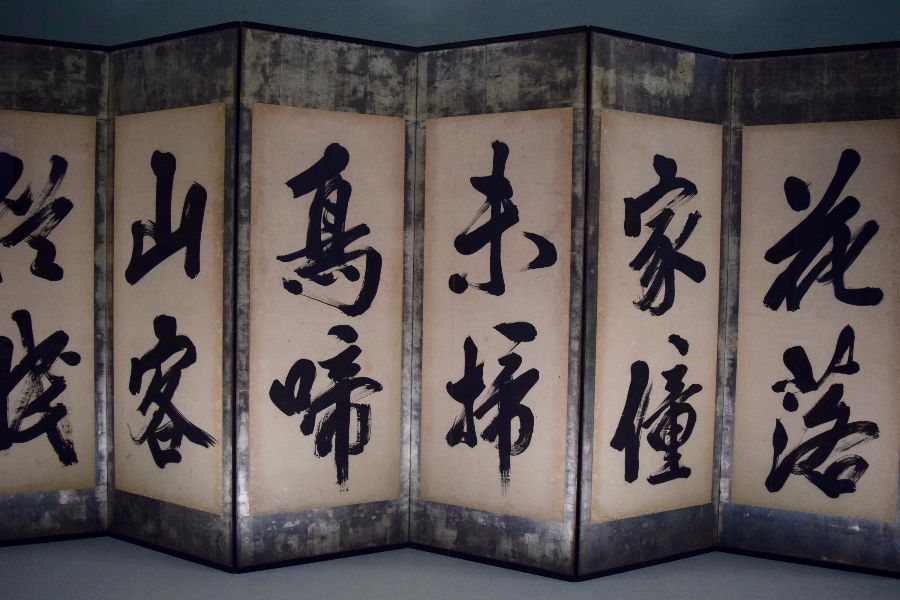 花落
家僮
未掃
鳥啼
山客